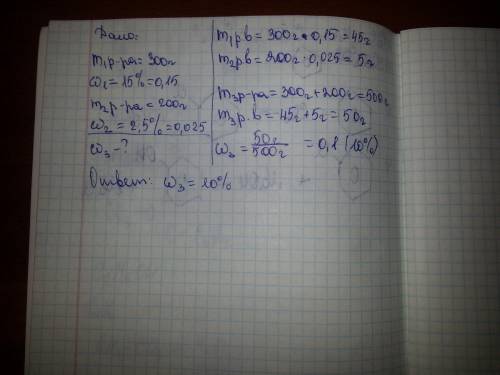 Дано:
m₁р-ра = 300г
ω₁ = 15% = 0,15
m₂р-ра = 200г
ω₂ = 2,5% = 0,025
ω₃ - ?
m₁р.в = 300г • 0,15 = 45г
m₂р.в = 200г · 0,025 = 5г
m₃р-ра = 300г + 200г = 500г
m₃р.в = 45г + 5г = 50г
ω₃ = 50г / 500г = 0,1 (10%)
Ответ: ω₃ = 10%